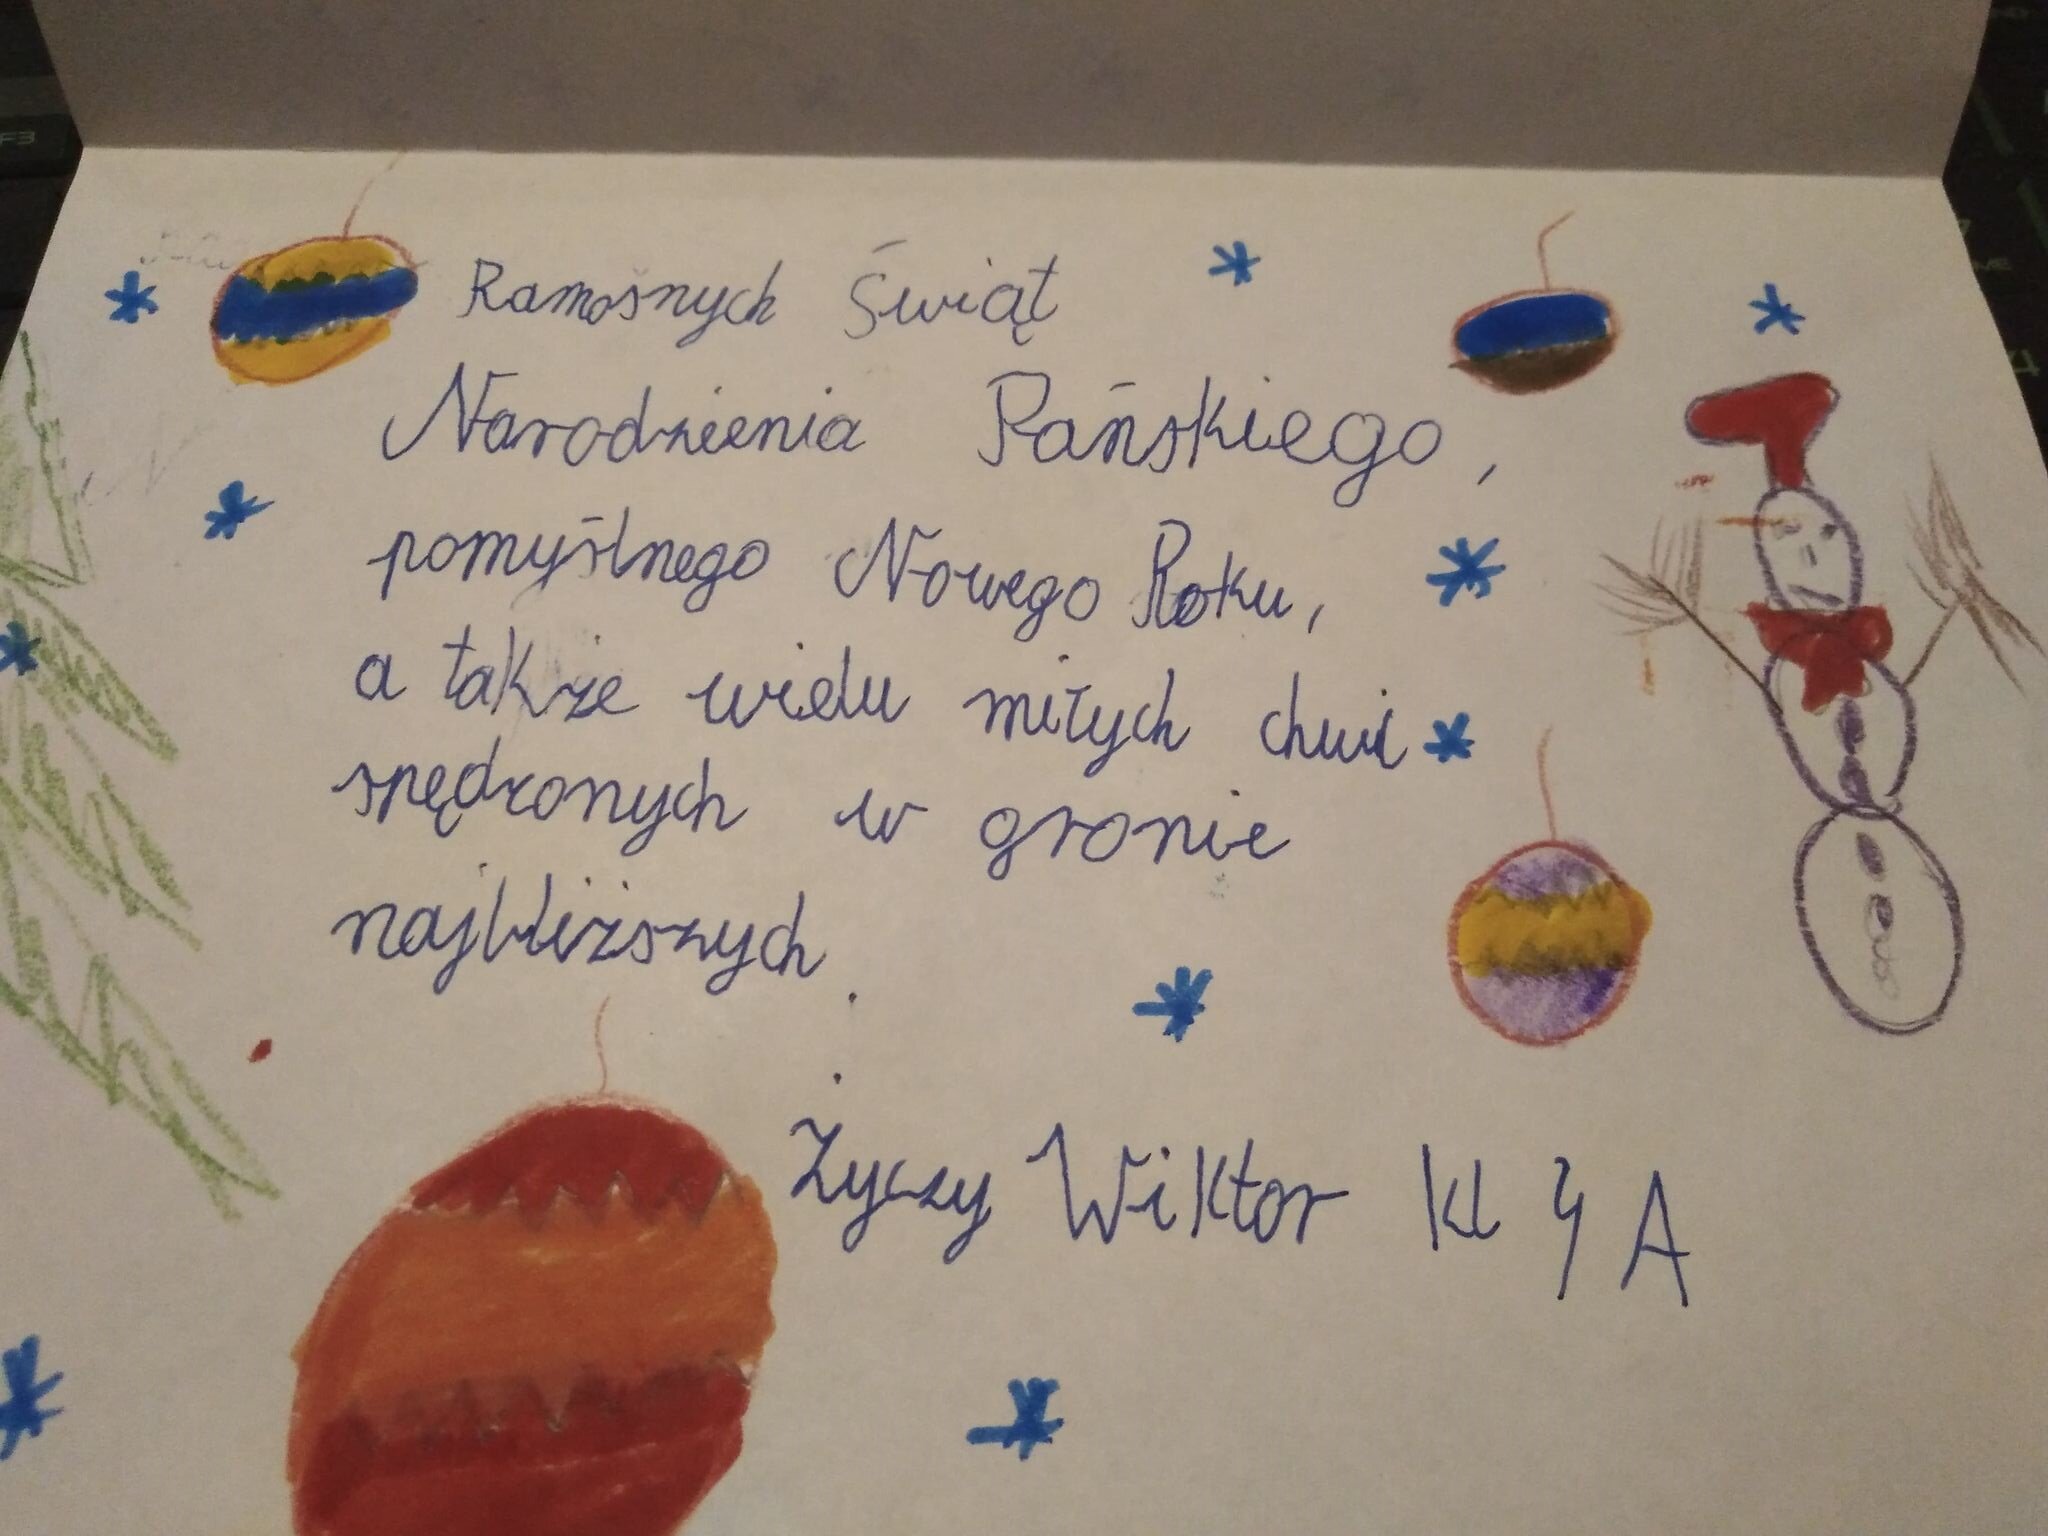 Ramośnych Świąt
Narodzienia Pańskiego,
pomyślnego Nowego Roku,
a także wielu miłych chwil
spędzonych w gronie
najbliższych.
Życzy Wiktor kl 4 A
F3